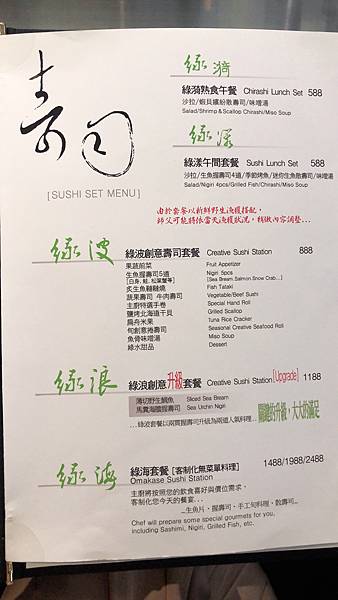 壽司
[SUSHI SET MENU]
綠漪
綠漪熟食午餐 Chirashi Lunch Set 588
沙拉/蝦貝繽紛散壽司/味噌湯
Salad/Shrimp & Scallop Chirashi/Miso Soup
綠漾
綠漾午間套餐 Sushi Lunch Set 588
沙拉/生魚握壽司4道/季節烤魚/迷你生魚散壽司/味噌湯
Salad/Nigiri 4pcs/Grilled Fish/Chirashi/Miso Soup
由於套餐以新鮮野生漁獲搭配，
師父可能將依當天漁獲狀況，稍微內容調整...
綠波
綠波創意壽司套餐 Creative Sushi Station 888
果蔬前菜 Fruit Appetizer
生魚握壽司5道 Nigiri 5pcs
[白身、鮭、松葉蟹等] [Sea Bream.Salmon.Snow Crab...]
炙生魚韃韃燒 Fish Tataki
蔬果壽司 牛肉壽司 Vegetable/Beef Sushi
主廚特選手卷 Special Hand Roll
鹽烤北海道干貝 Grilled Scallop
扁舟米果 Tuna Rice Cracker
旬創意捲壽司 Seasonal Creative Seafood Roll
魚骨味噌湯 Miso Soup
綠水甜品 Dessert
綠浪
綠浪創意升級套餐 Creative Sushi Station [Upgrade] 1188
薄切野生鯛魚 Sliced Sea Bream
馬糞海膽握壽司 Sea Urchin Nigiri
...綠波套餐以兩貫握壽司升級為兩道人氣料理... 關鍵的升級，大大的滿足
綠海
綠海套餐 [客制化無菜單料理] 1488/1988/2488
Omakase Sushi Station
主廚將按照您的飲食喜好與價位需求，
客制化您今天的餐宴...
...生魚片、握壽司、手工旬料理、散壽司...
Chef will prepare some special gourmets for you,
including Sashimi, Nigiri, Grilled Fish, etc.